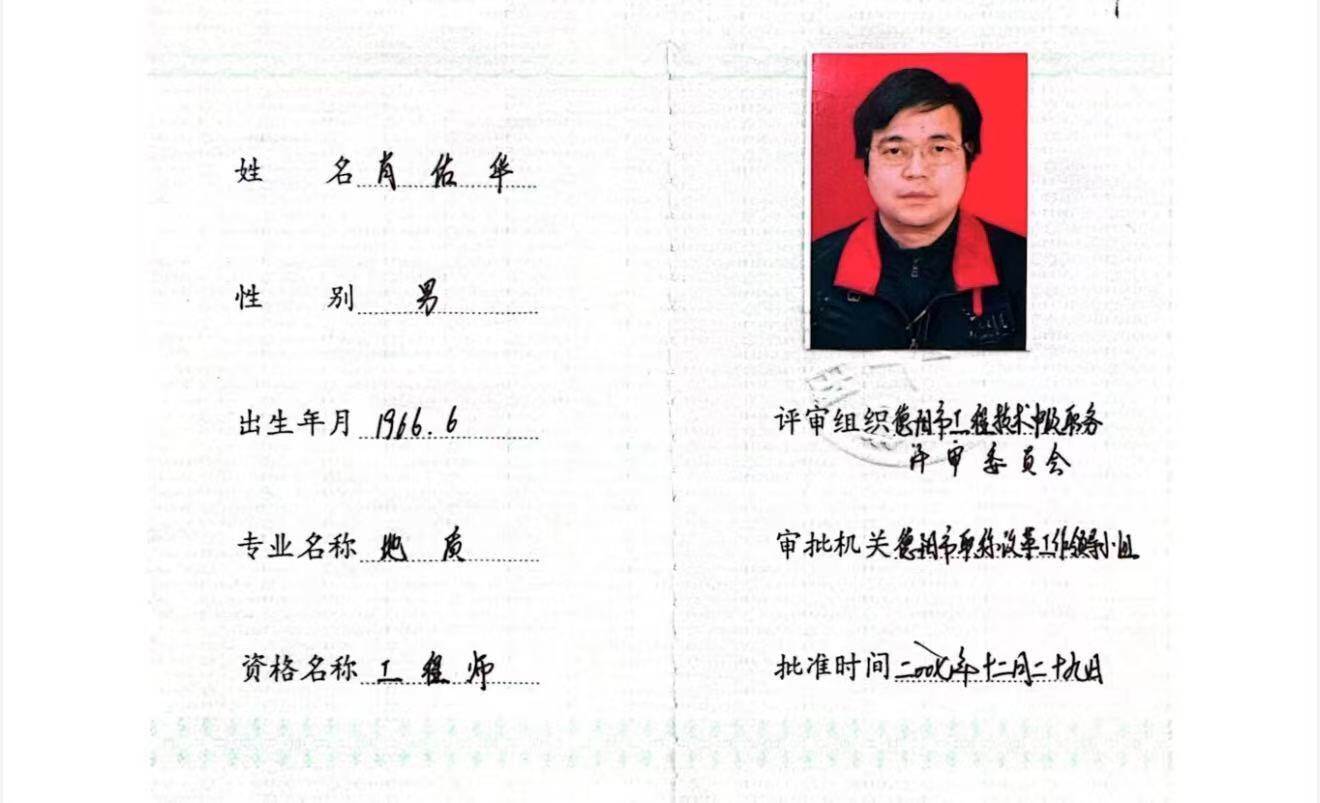 姓 名 肖佑华
性 别 男
出生年月 1966.6
专业名称 地质
资格名称 工程师
评审组织 德阳市工程技术中级职务
评审委员会
审批机关 德阳市职称改革工作领导小组
批准时间 二〇〇七年十二月二十九日